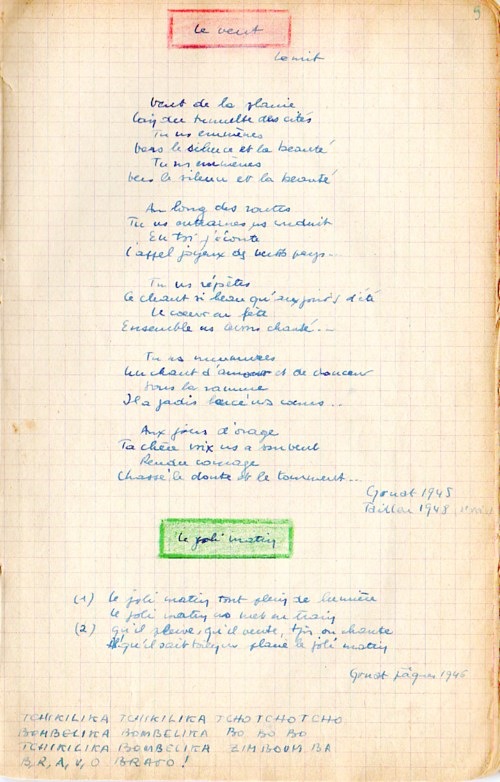 9
Le vent
Vent de la plaine
Loin du tumulte des cités
Tu ns emmènes
Vers le silence et la beauté
Tu ns emmènes
Vers le silence et la beauté
Au long des routes
Tu ns entraines ns conduit
En toi j'écoute
L'appel joyeux des pays...
Tu ns répètes
Ce chant si beau qu'aux jours d'été
Le coeur en fête
Ensemble ns avons chanté...
Tu ns murmures
Un chant d'amour et de douceur
Sous la ramure
Il a jadis bercé nos coeurs...
Aux jours d'orage
Ta chère voix ns a souvent
Rendu courage
Chassé le doute et le tourment...
1945
1943
Le joli matin
(1) Le joli matin tout plein de lumière
Le joli matin ns met en train
(2) qu'il pleuve, qu'il vente, tjrs on chante
le joli matin
Pâques 1946
TCHIKILIKA TCHIKILIKA TCHOTCHOTCHO
BOMBELIKA BOMBELIKA BO BO BO
TCHIKILIKA BOMBELIKA ZIMBOUM BA
B, R, A, V, O BRAVO !